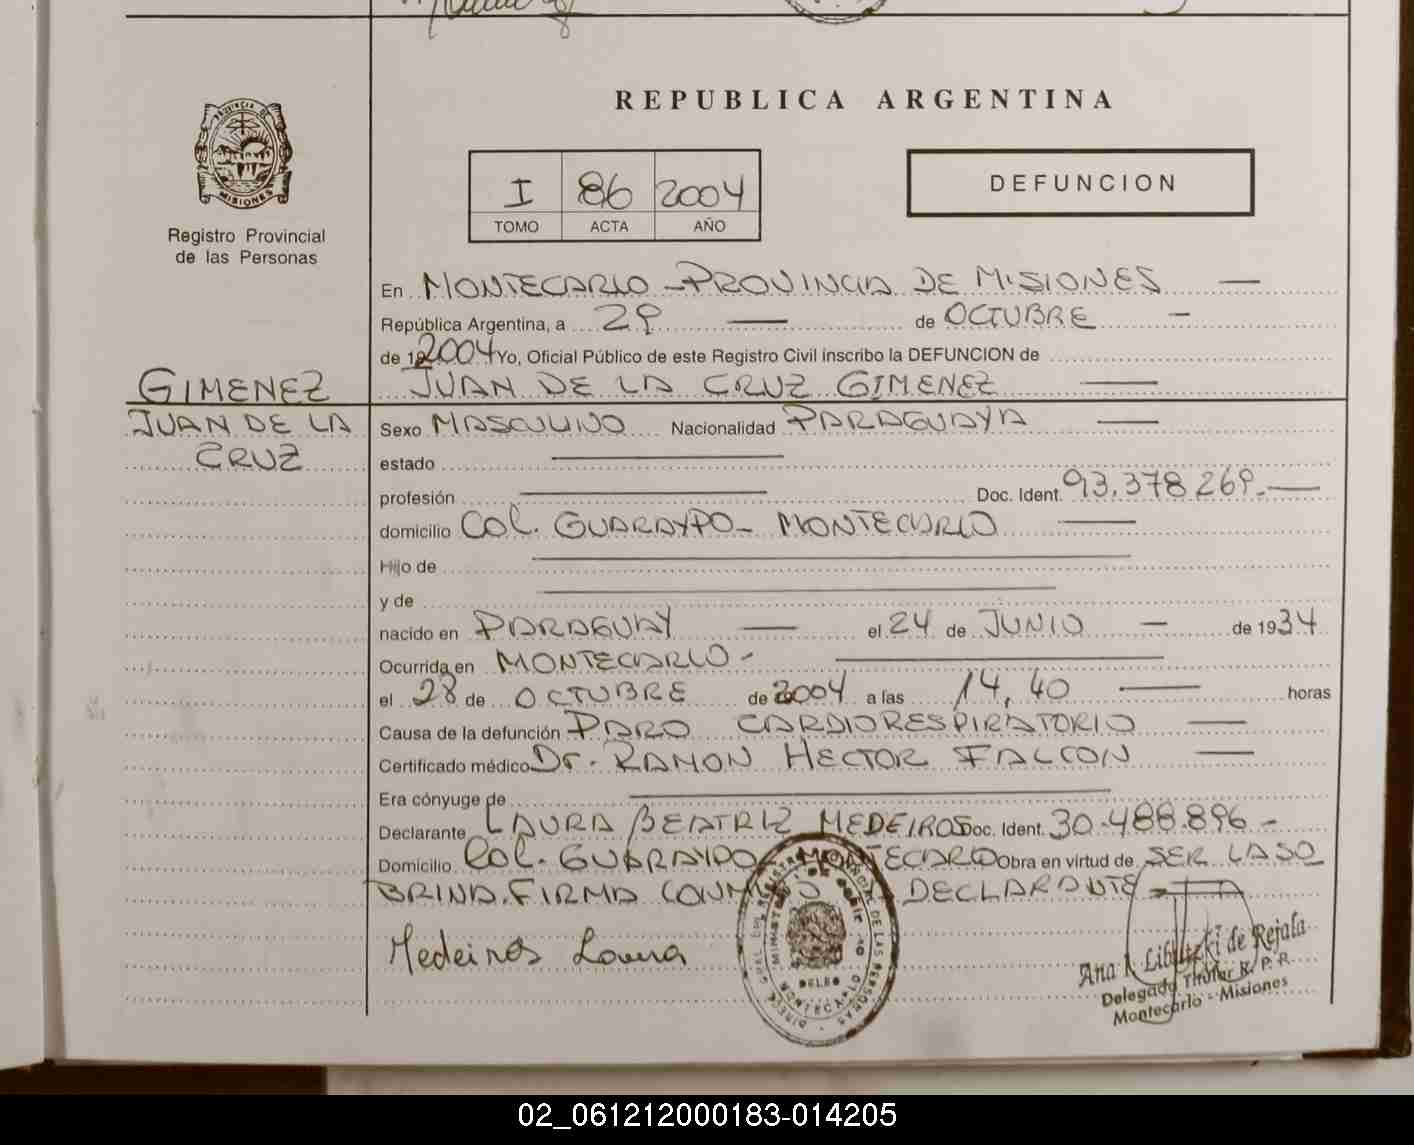 PROVINCIA DE
MISIONES
Registro Provincial
de las Personas
REPUBLICA ARGENTINA
I 86 2004
TOMO ACTA AÑO
DEFUNCION
En MONTECARLO - PROVINCIA DE MISIONES —
República Argentina, a 29 — de OCTUBRE —
de 2004 Yo, Oficial Público de este Registro Civil inscribo la DEFUNCION de
GIMENEZ JUAN DE LA CRUZ GIMENEZ —
JUAN DE LA
CRUZ
Sexo MASCULINO Nacionalidad PARAGUAYA —
estado —
profesión — Doc. Ident. 93.378.269.—
domicilio COL. GUARAYPO - MONTECARLO —
Hijo de —
y de —
nacido en PARAGUAY — el 24 de JUNIO — de 1934
Ocurrida en MONTECARLO - —
el 28 de OCTUBRE de 2004 a las 14,40 — horas
Causa de la defunción PARO CARDIORESPIRATORIO —
Certificado médico Dr. RAMON HECTOR FALCON —
Era cónyuge de —
Declarante LAURA BEATRIZ MEDEIROS Doc. Ident. 30.488.896 -
Domicilio COL. GUARAYPO - MONTECARLO Obra en virtud de SER LA SO
BRINA. FIRMA CONMIGO DECLARANTE
Medeiros Laura
MONTECARLO
Ana Libutzki de Rejala
Delegado Titular R. P. P.
Montecarlo - Misiones
02_061212000183-014205